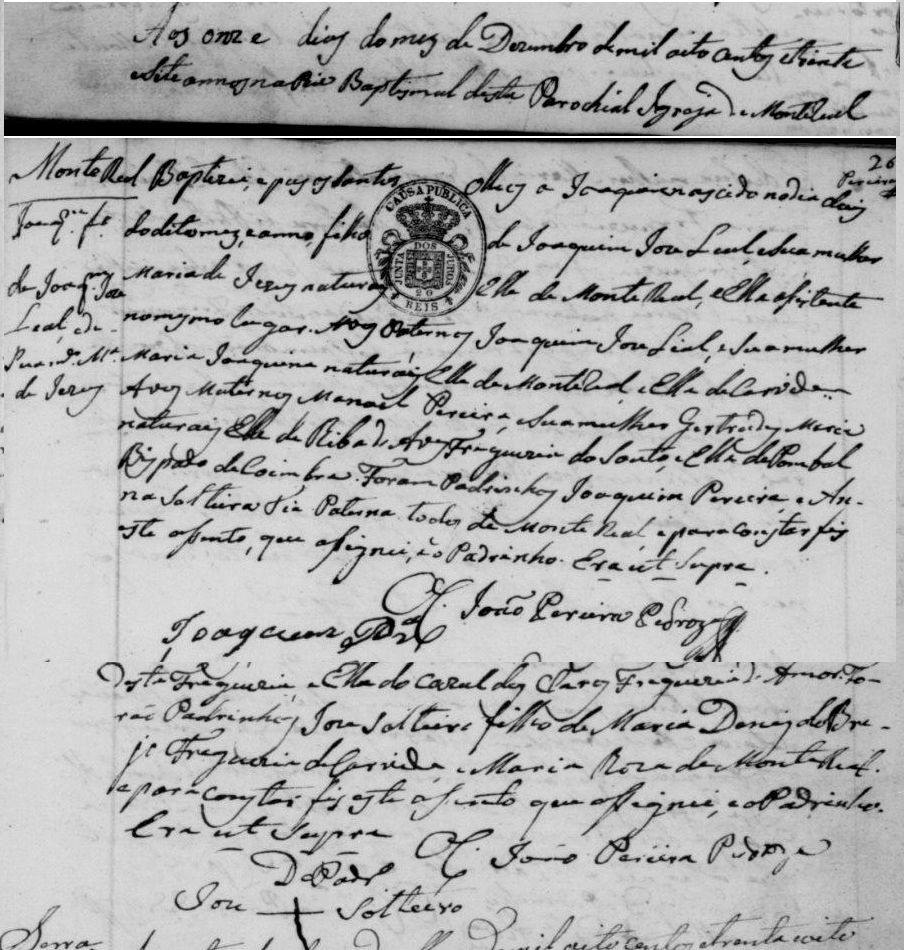 Aos onze dias do mez de Dezembro de mil oito centos e trinta
e sete annos na Pia Baptismal desta Parochial Igreja de Monte Real
26
Pereira
Monte Real
Baptizei, e puz os Santos Olleos a Joaquim nascido no dia dois
Joaqm. fo.
do dito mez, e anno, filho de Joaquim Joze Leal, e sua mulher
de Joaqm. Joze
Maria de Jezus naturaes Elle de Monte Real, e Ella asistente
Leal, e de
no mesmo lugar. Avos Paternos Joaquim Joze Leal, e sua mulher
Sua Ma.
Maria Joaquina naturais Elle de Monte Real e Ella de Carvide
de Jezus
Avos Maternos Manoel Pereira, e sua mulher Gertrudes Maria
naturais Elle de Riba d'Aves Freguezia do Souto, e Ella de Pombal
Bispado de Coimbra. Foram Padrinhos Joaquim Pereira, e An-
na Solteira Tia Paterna todos de Monte Real, e para constar fis
este asento, que asignei, e o Padrinho. Era ut Supra.
O C. João Pereira Pedroza
Joaquim
CAUSA PUBLICA
JUNTA DOS JUROS
REIS
20
desta Freguezia, e Ella do Cazal dos Claros Freguezia d'Amor. Fo-
rão Padrinhos Joze Solteiro filho de Maria Diniz do Bre-
jo Freguezia de Carvide, e Maria Roza de Monte Real.
e para constar fis este asento que asignei, e o Padrinho.
Era ut Supra
O C. João Pereira Pedroza
Do Padr
Joze + Solteiro
Serra
mil oito centos e trinta e oito